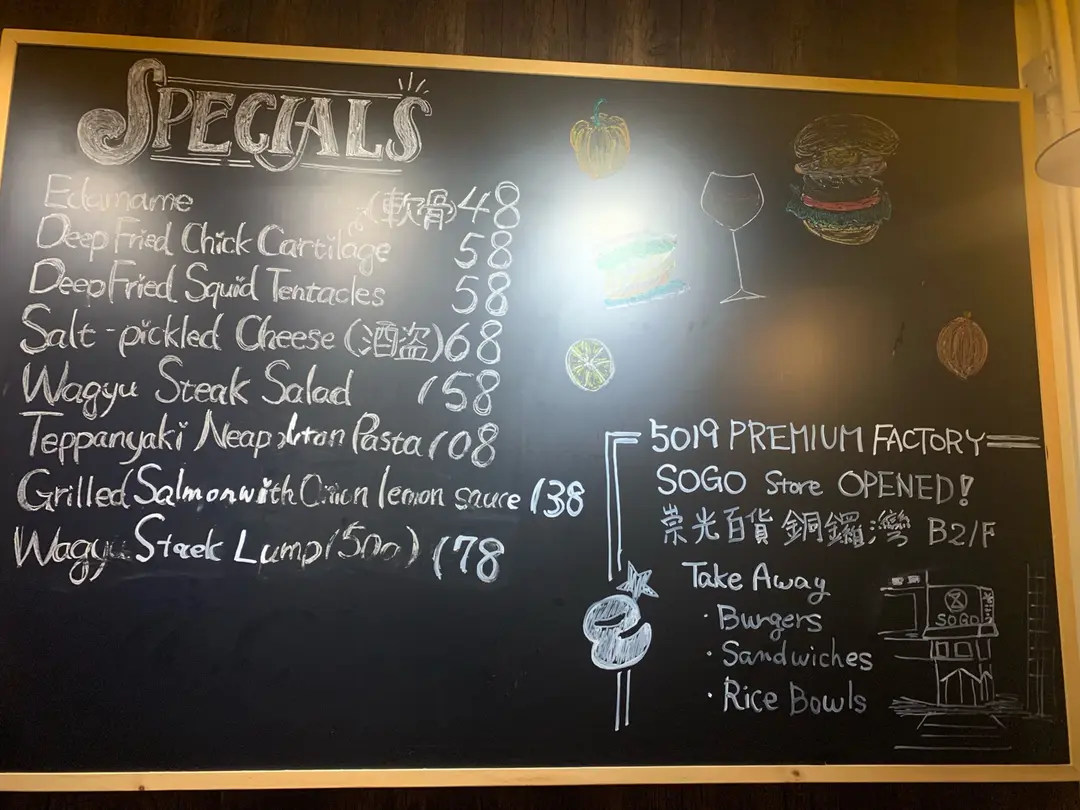 SPECIALS
Edamame 48
Deep Fried Chick Cartilage (軟骨) 58
Deep Fried Squid Tentacles 58
Salt-pickled Cheese (酒盗) 68
Wagyu Steak Salad 158
Teppanyaki Pasta 108
Grilled Salmon with Onion lemon sauce 138
Wagyu Lump 178
5019 PREMIUM FACTORY
SOGO Store OPENED!
崇光百貨 銅鑼灣 B2/F
Take Away
· Burgers
· Sandwiches
· Rice Bowls
SOGO